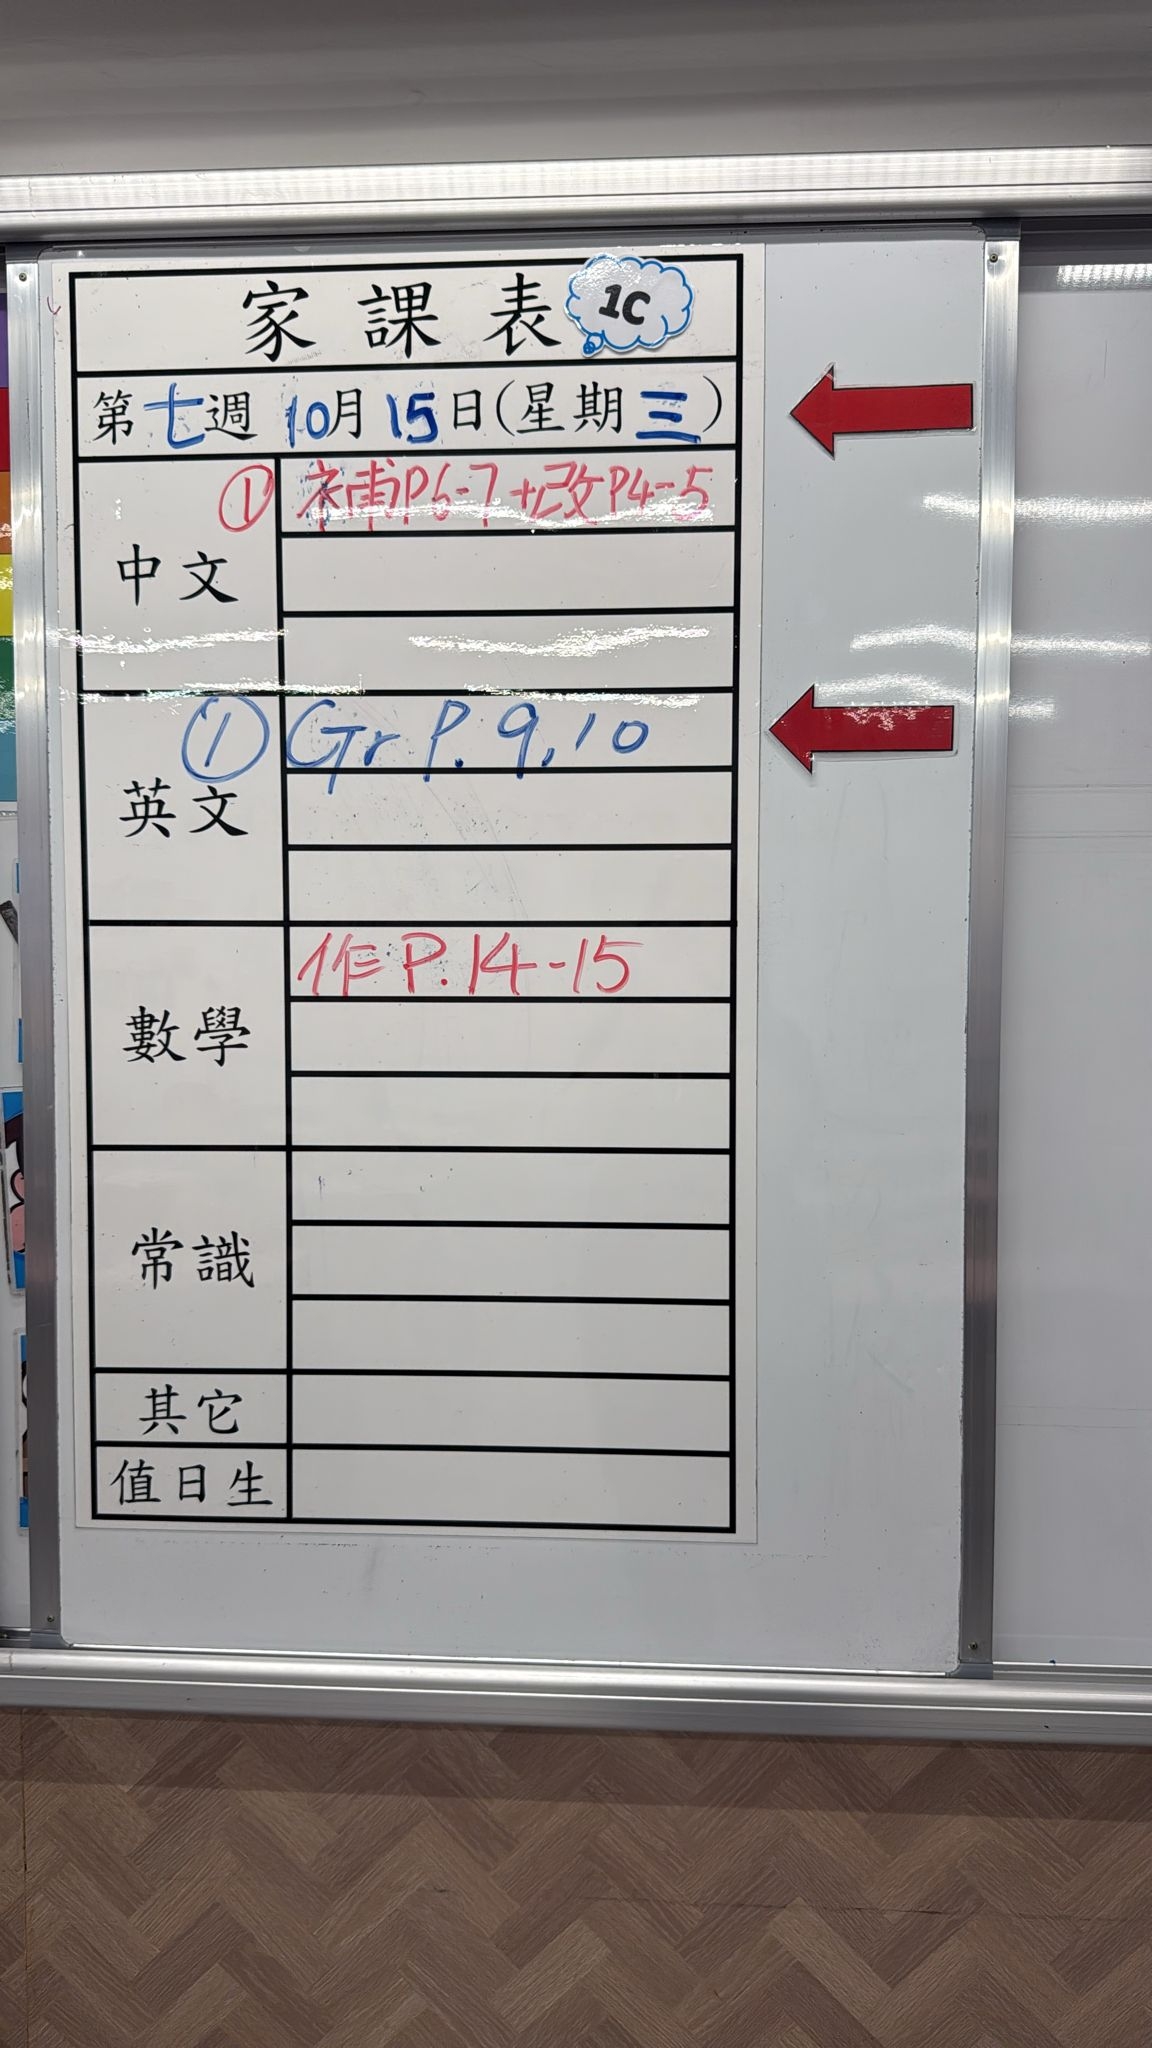 家課表 1C
第七週 10月15日(星期三)
中文 ① 補P6-7+改P4-5
英文 ① Gr P. 9, 10
數學 作 P. 14-15
常識
其它
值日生